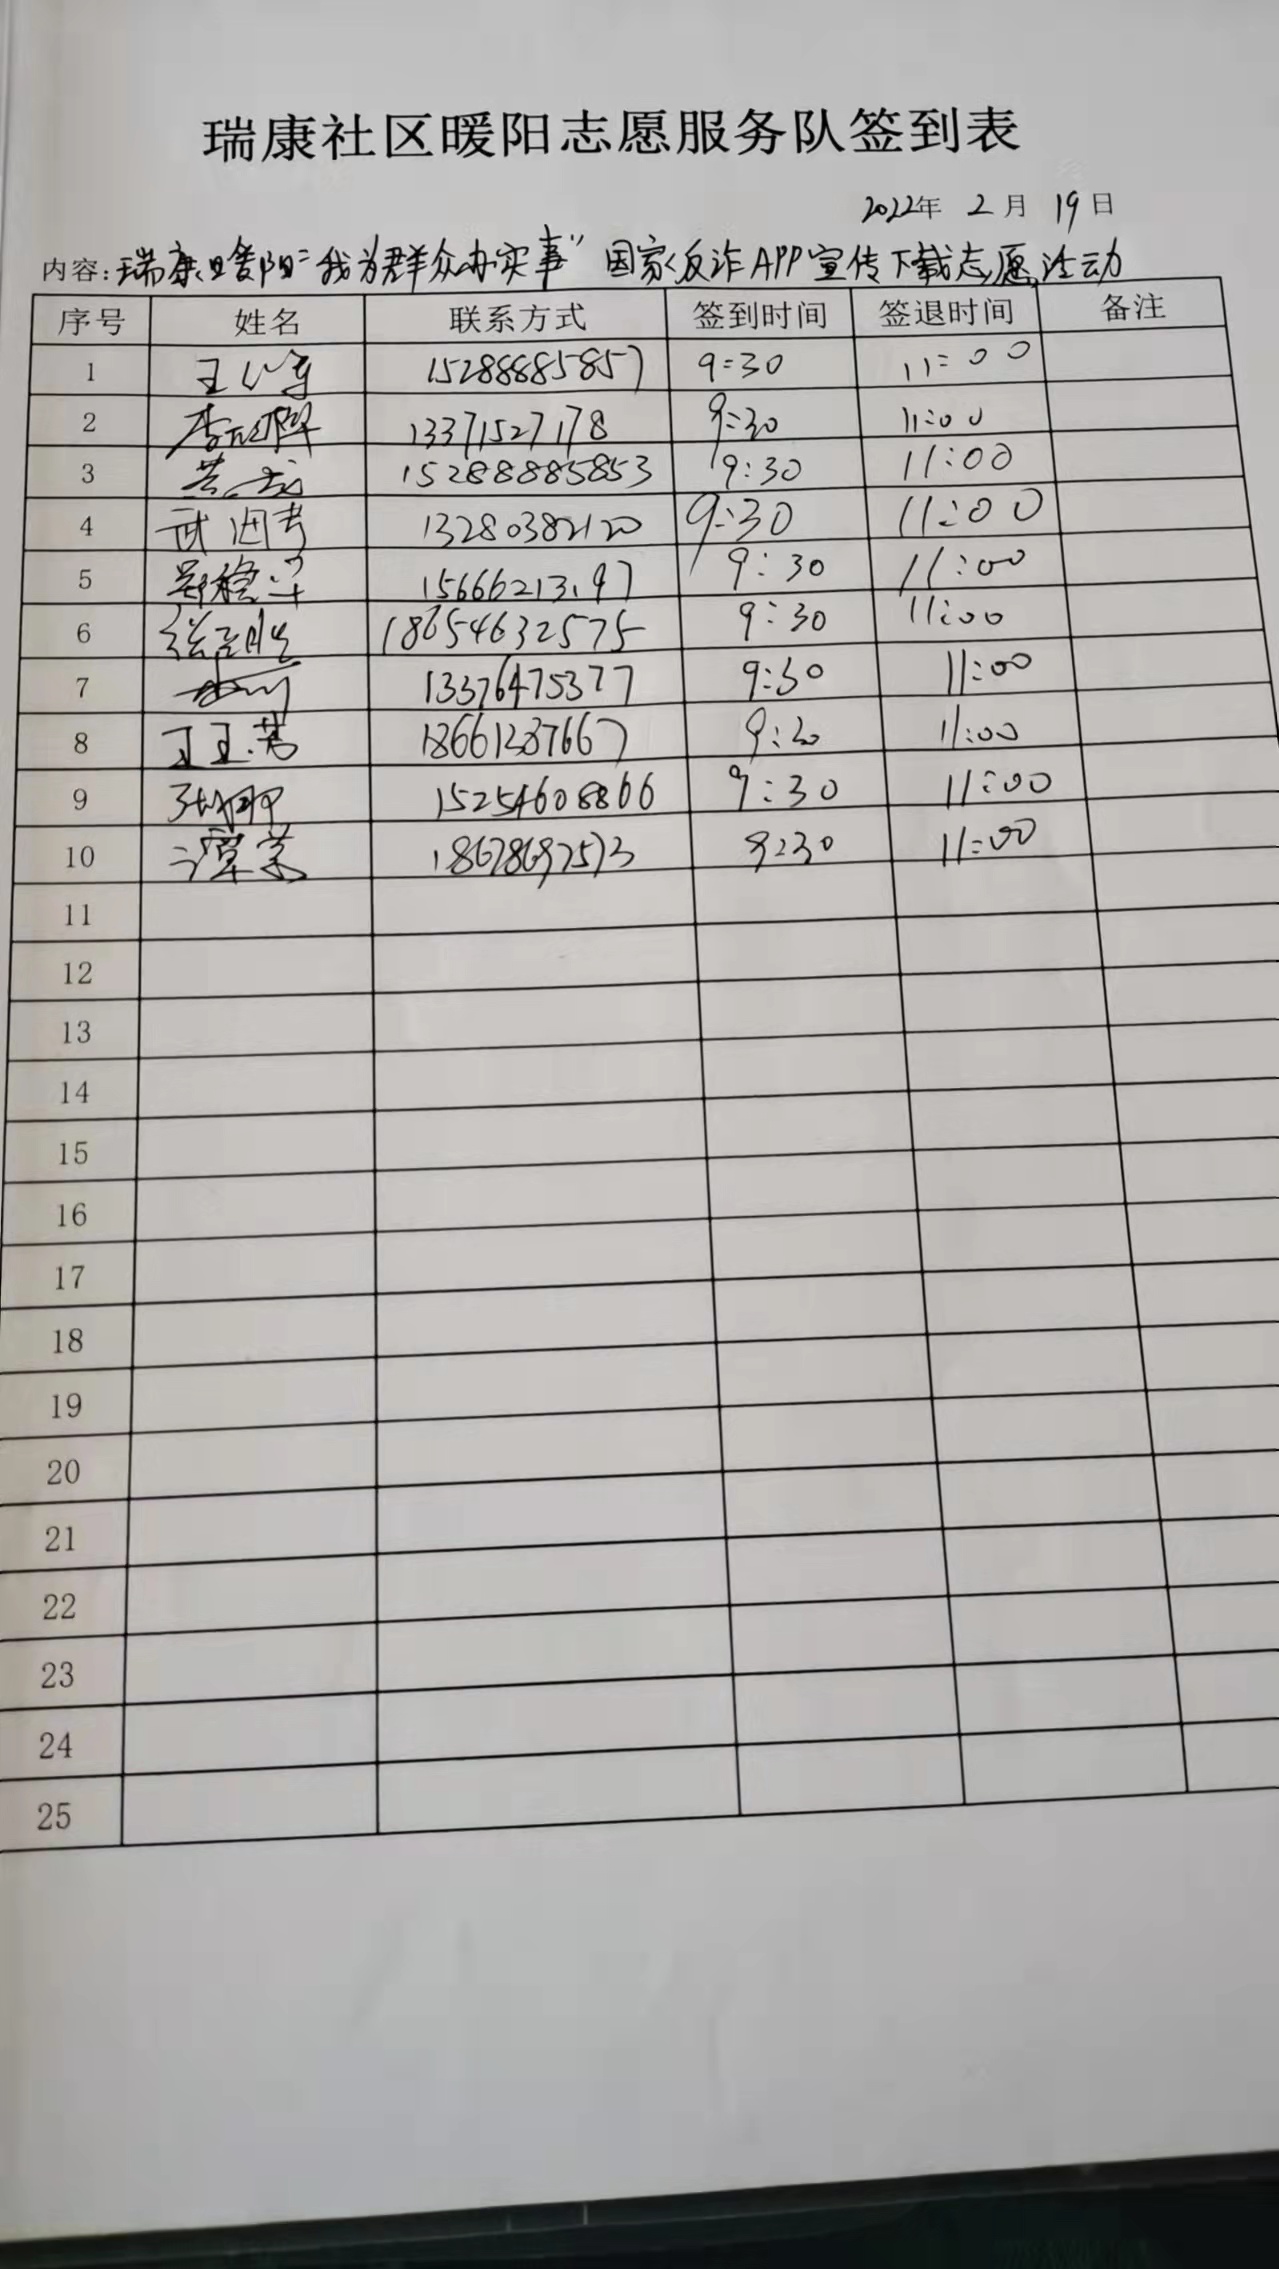 瑞康社区暖阳志愿服务队签到表
2022年 2 月 19 日
内容:瑞康暖阳"我为群众办实事" 国家反诈APP宣传下载志愿活动
序号 姓名 联系方式 签到时间 签退时间 备注
1 15288885857 9:30 11:00
2 13371527178 9:30 11:00
3 15288885853 9:30 11:00
4 13280382120 9:30 11:00
5 9:30 11:00
6 18654632575 9:30 11:00
7 13376475377 9:30 11:00
8 9:30 11:00
9 15254608866 9:30 11:00
10 谭荣 18678692573 9:30 11:00
11
12
13
14
15
16
17
18
19
20
21
22
23
24
25